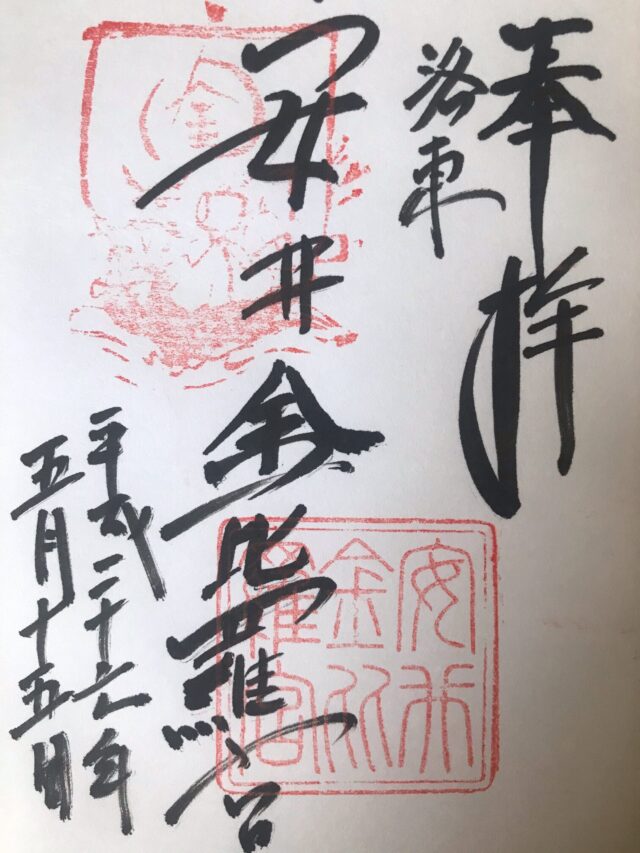 奉拝
洛東
安井金比羅宮
平成二十六年
五月十五日
金
安井
金比
羅宮